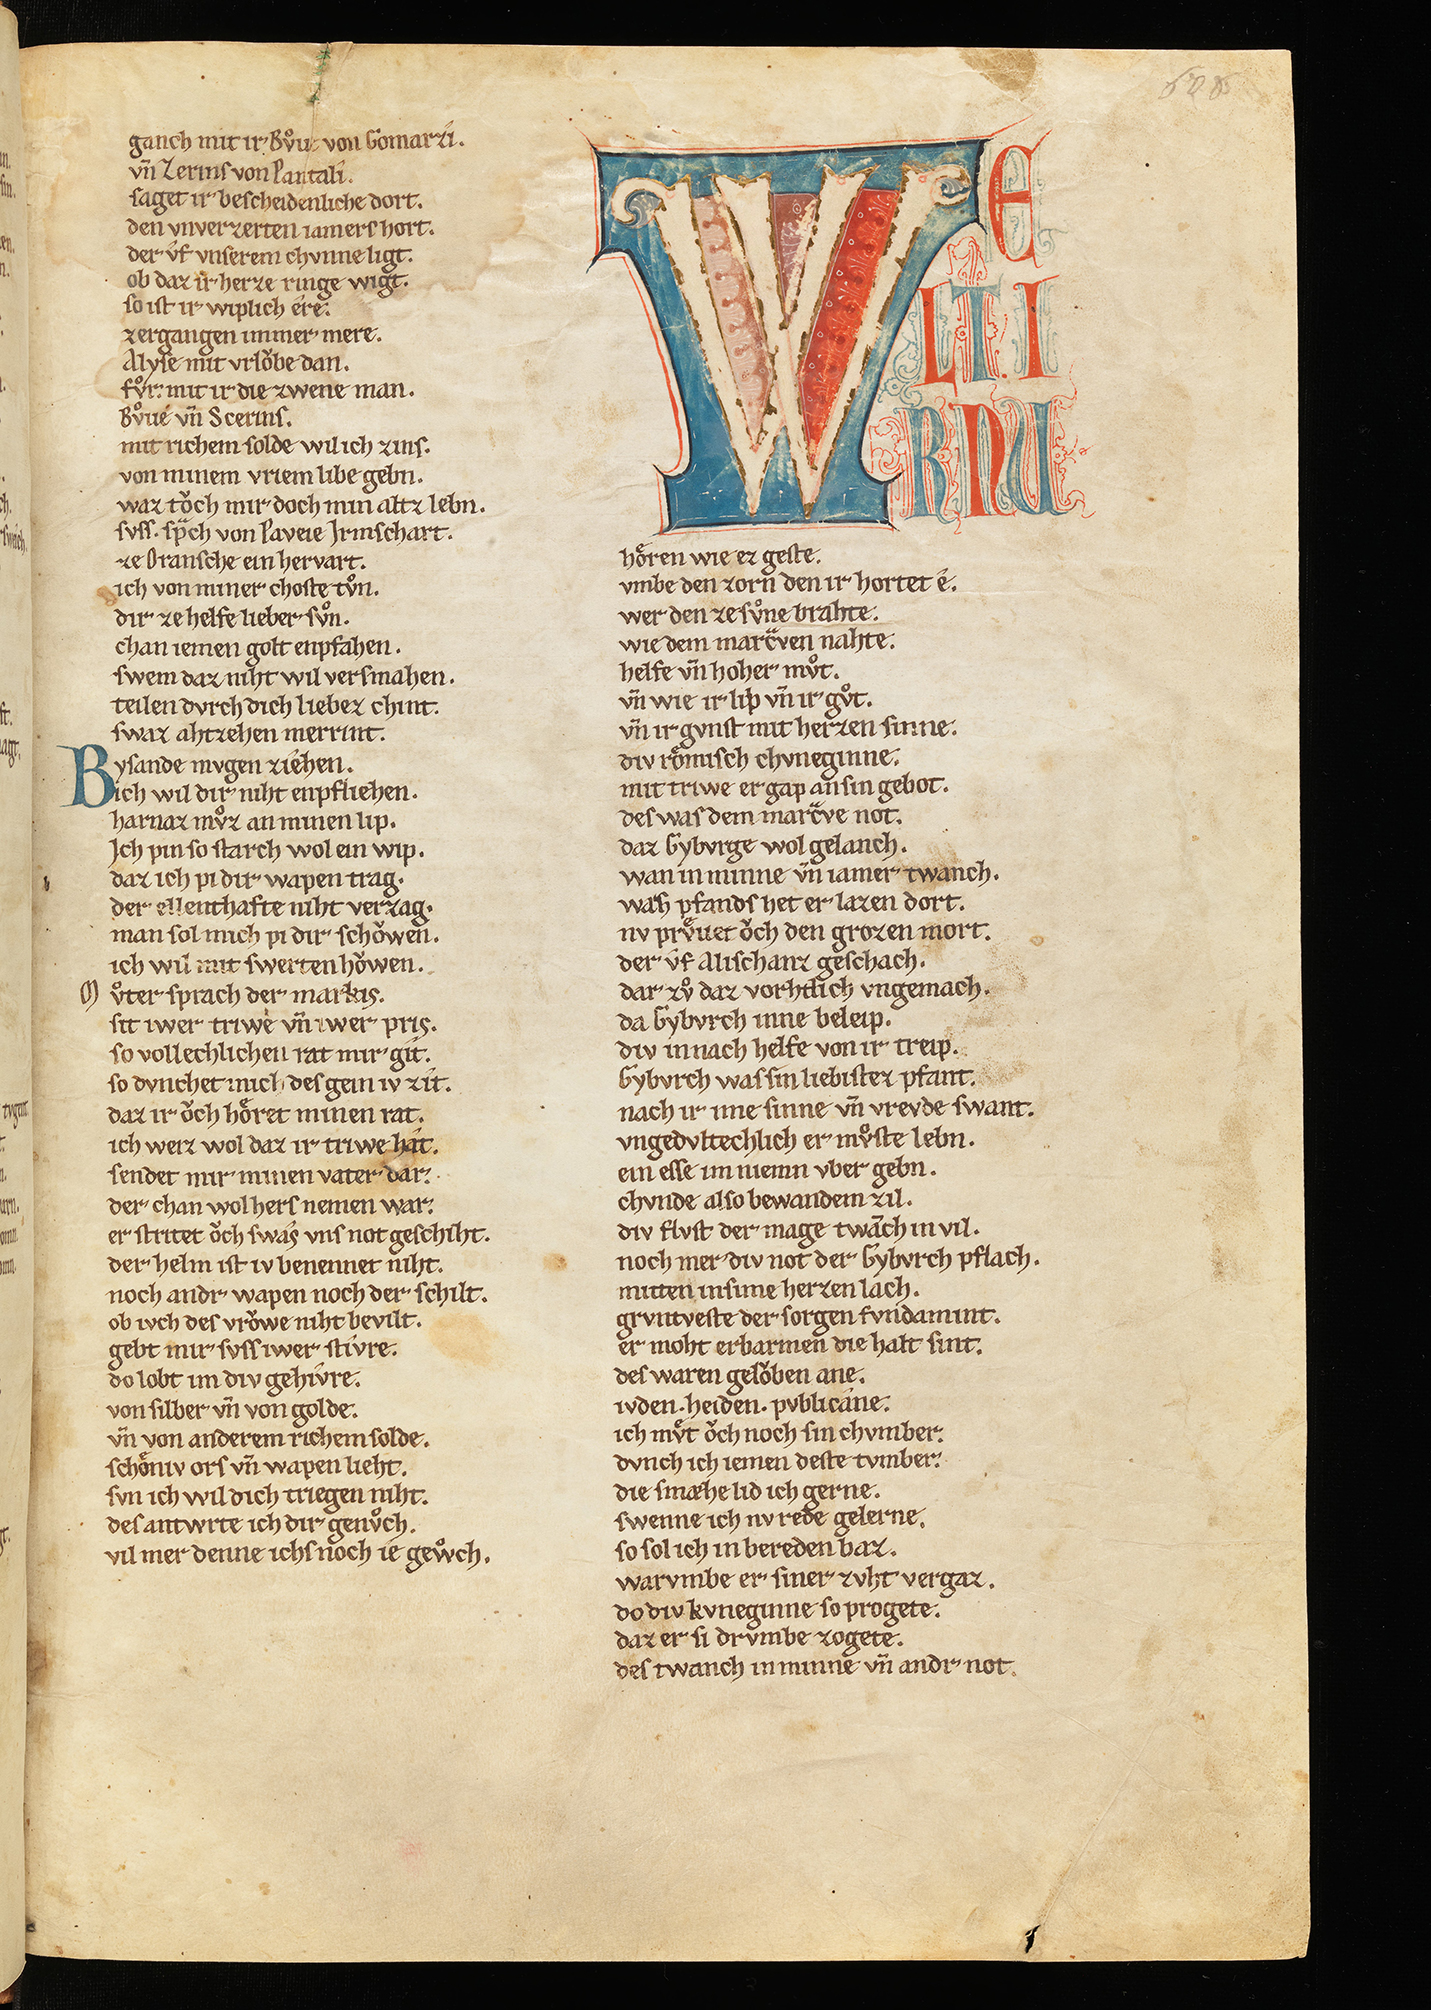 ganch mit ir Bv̊ue von Gomarzi.
vn̄ Zerins von Pantali.
saget ir bescheidenliche dort.
den vnverzerten iamers hort.
der v̂f vnserem chvnne ligt.
ob daz ir herze ringe wigt.
so ist ir wiplich ere.
zergangen immer mere.
Alyse mit vrlŏbe dan.
fv̊r mit ir die zwene man.
Bv̊ue vn̄ Scerins.
mit richem solde wil ich zins.
von minem vriem libe gebn.
waz tŏch mir doch min altz lebn.
svss. sp̄ch von Paveie Irmschart.
ze Oransche ein hervart.
ich von miner choste tv̊n.
dir ze helfe lieber sv̊n.
chan iemen golt enpfahen.
swem daz niht wil versmahen.
teilen dvrch dich liebez chint.
swaz ahtzehen merrint.
Bysande mvgen ziehen.
ich wil dir niht enpfliehen.
harnaz mv̊z an minen lip.
Ich pin so starch wol ein wip.
daz ich pi dir wapen trag.
der ellenthafte niht verzag.
man sol mich pi dir schŏwen.
ich wil mit swerten hŏwen.
Mv̊ter sprach der markis.
sit iwer triwe vn̄ iwer pris.
so vollechlichen rat mir git.
so dvnchet mich des gein iv zit.
daz ir ŏch hôret minen rat.
ich weiz wol daz ir triwe hat.
sendet mir minen vater dar.
der chan wol hers nemen war.
er stritet ŏch swas vns not geschiht.
der helm ist iv benennet niht.
noch andr wapen noch der schilt.
ob ivch des vrŏwe niht bevilt.
gebt mir svss iwer stivre.
do lobt im div gehivre.
von silber vn̄ von golde.
vn̄ von anderem richem solde.
schôniv ors vn̄ wapen lieht.
svn ich wil dich triegen niht.
des antwrte ich dir genv̊ch.
vil mer denne ichs noch ie gewv̊ch.
WE
LT I
R NU
hôren wie ez geste.
vmbe den zorn den ir hortet e.
wer den ze sv̊ne brahte.
wie dem marcͣven nahte.
helfe vn̄ hoher mv̊t.
vn̄ wie ir lip vn̄ ir gv̊t.
vn̄ ir gvnst mit herzen sinne.
div rômisch chvneginne.
mit triwe er gap an sin gebot.
des was dem marcͣve not.
daz Gybvrge wol gelanch.
wan in minne vn̄ iamer twanch.
was pfands het er lazen dort.
nv prv̂uet ŏch den grozen mort.
der v̂f Alischanz geschach.
dar zv̊ daz vorhtlich vngemach.
da Gybvrch inne beleip.
div in nach helfe von ir treip.
Gybvrch was sin liebistez pfant.
nach ir ime sinne vn̄ vrevde swant.
vngedvltechlich er mv̊ste lebn.
ein esse im niemn vber gebn.
chvnde also bewandem zil.
div flvst der mage twāch in vil.
noch mer div not der Gybvrch pflach.
mitten in sime herzen lach.
grvntveste der sorgen fvndamint.
er moht erbarmen die halt sint.
des waren gelŏben ane.
ivden. heiden. pvblicane.
ich mv̂t ŏch noch sin chvmber.
dvnch ich iemen deste tvmber.
die smæhe lid ich gerne.
swenne ich nv rede gelerne.
so sol ich in bereden baz.
warvmbe er siner zvht vergaz.
do div kvneginne so progete.
daz er si drvmbe zogete.
des twanch in minne vn̄ andr not.